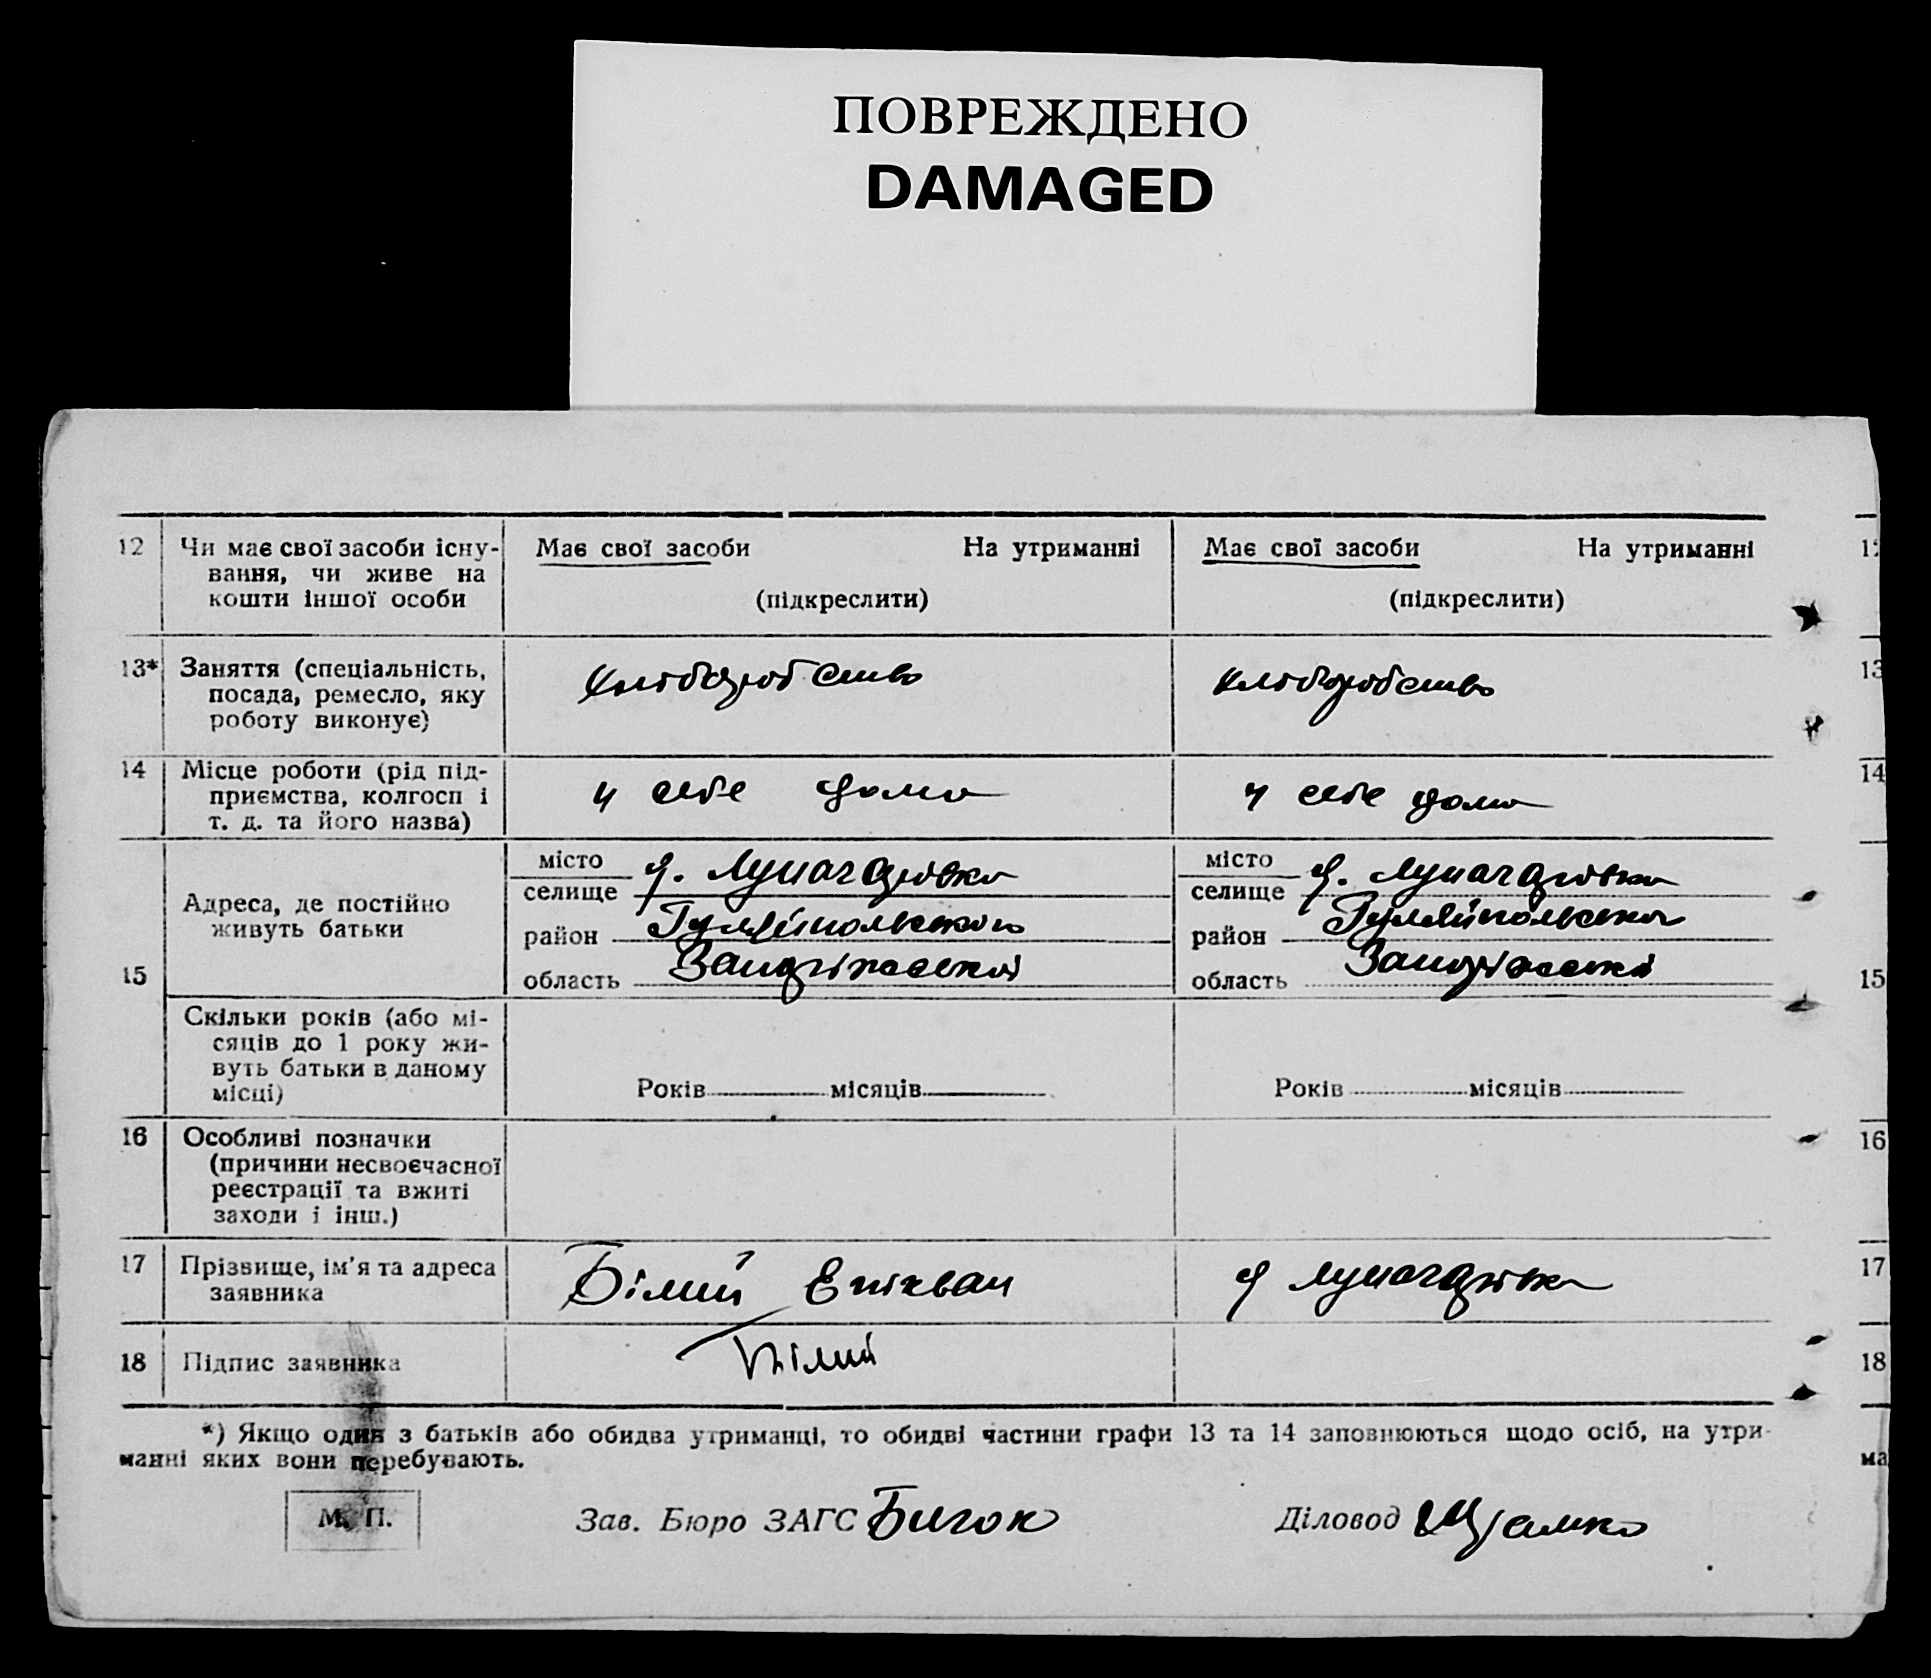 ПОВРЕЖДЕНО
DAMAGED
12 Чи має свої засоби існу- Має свої засоби На утриманні Має свої засоби На утриманні
вання, чи живе на
кошти іншої особи (підкреслити) (підкреслити)
13* Заняття (спеціальність, 13
посада, ремесло, яку хліборобство хліборобство
роботу виконує)
14 Місце роботи (рід під- 14
приємства, колгосп і у себе дома у себе дома
т. д. та його назва)
місто місто
селище селище
Адреса, де постійно
живуть батьки
район Гуляйпольського район
область Запорізької область Запорізької
15 15
Скільки років (або мі-
сяців до 1 року жи-
вуть батьки в даному
місці) Років місяців Років місяців
16 Особливі позначки 16
(причини несвоєчасної
реєстрації та вжиті
заходи і інш.)
17 Прізвище, ім'я та адреса Білий 17
заявника
18 Підпис заявника Білий 18
*) Якщо один з батьків або обидва утриманці, то обидві частини графи 13 та 14 заповнюються щодо осіб, на утри-
манні яких вони перебувають. ма
М. П. Зав. Бюро ЗАГС Діловод